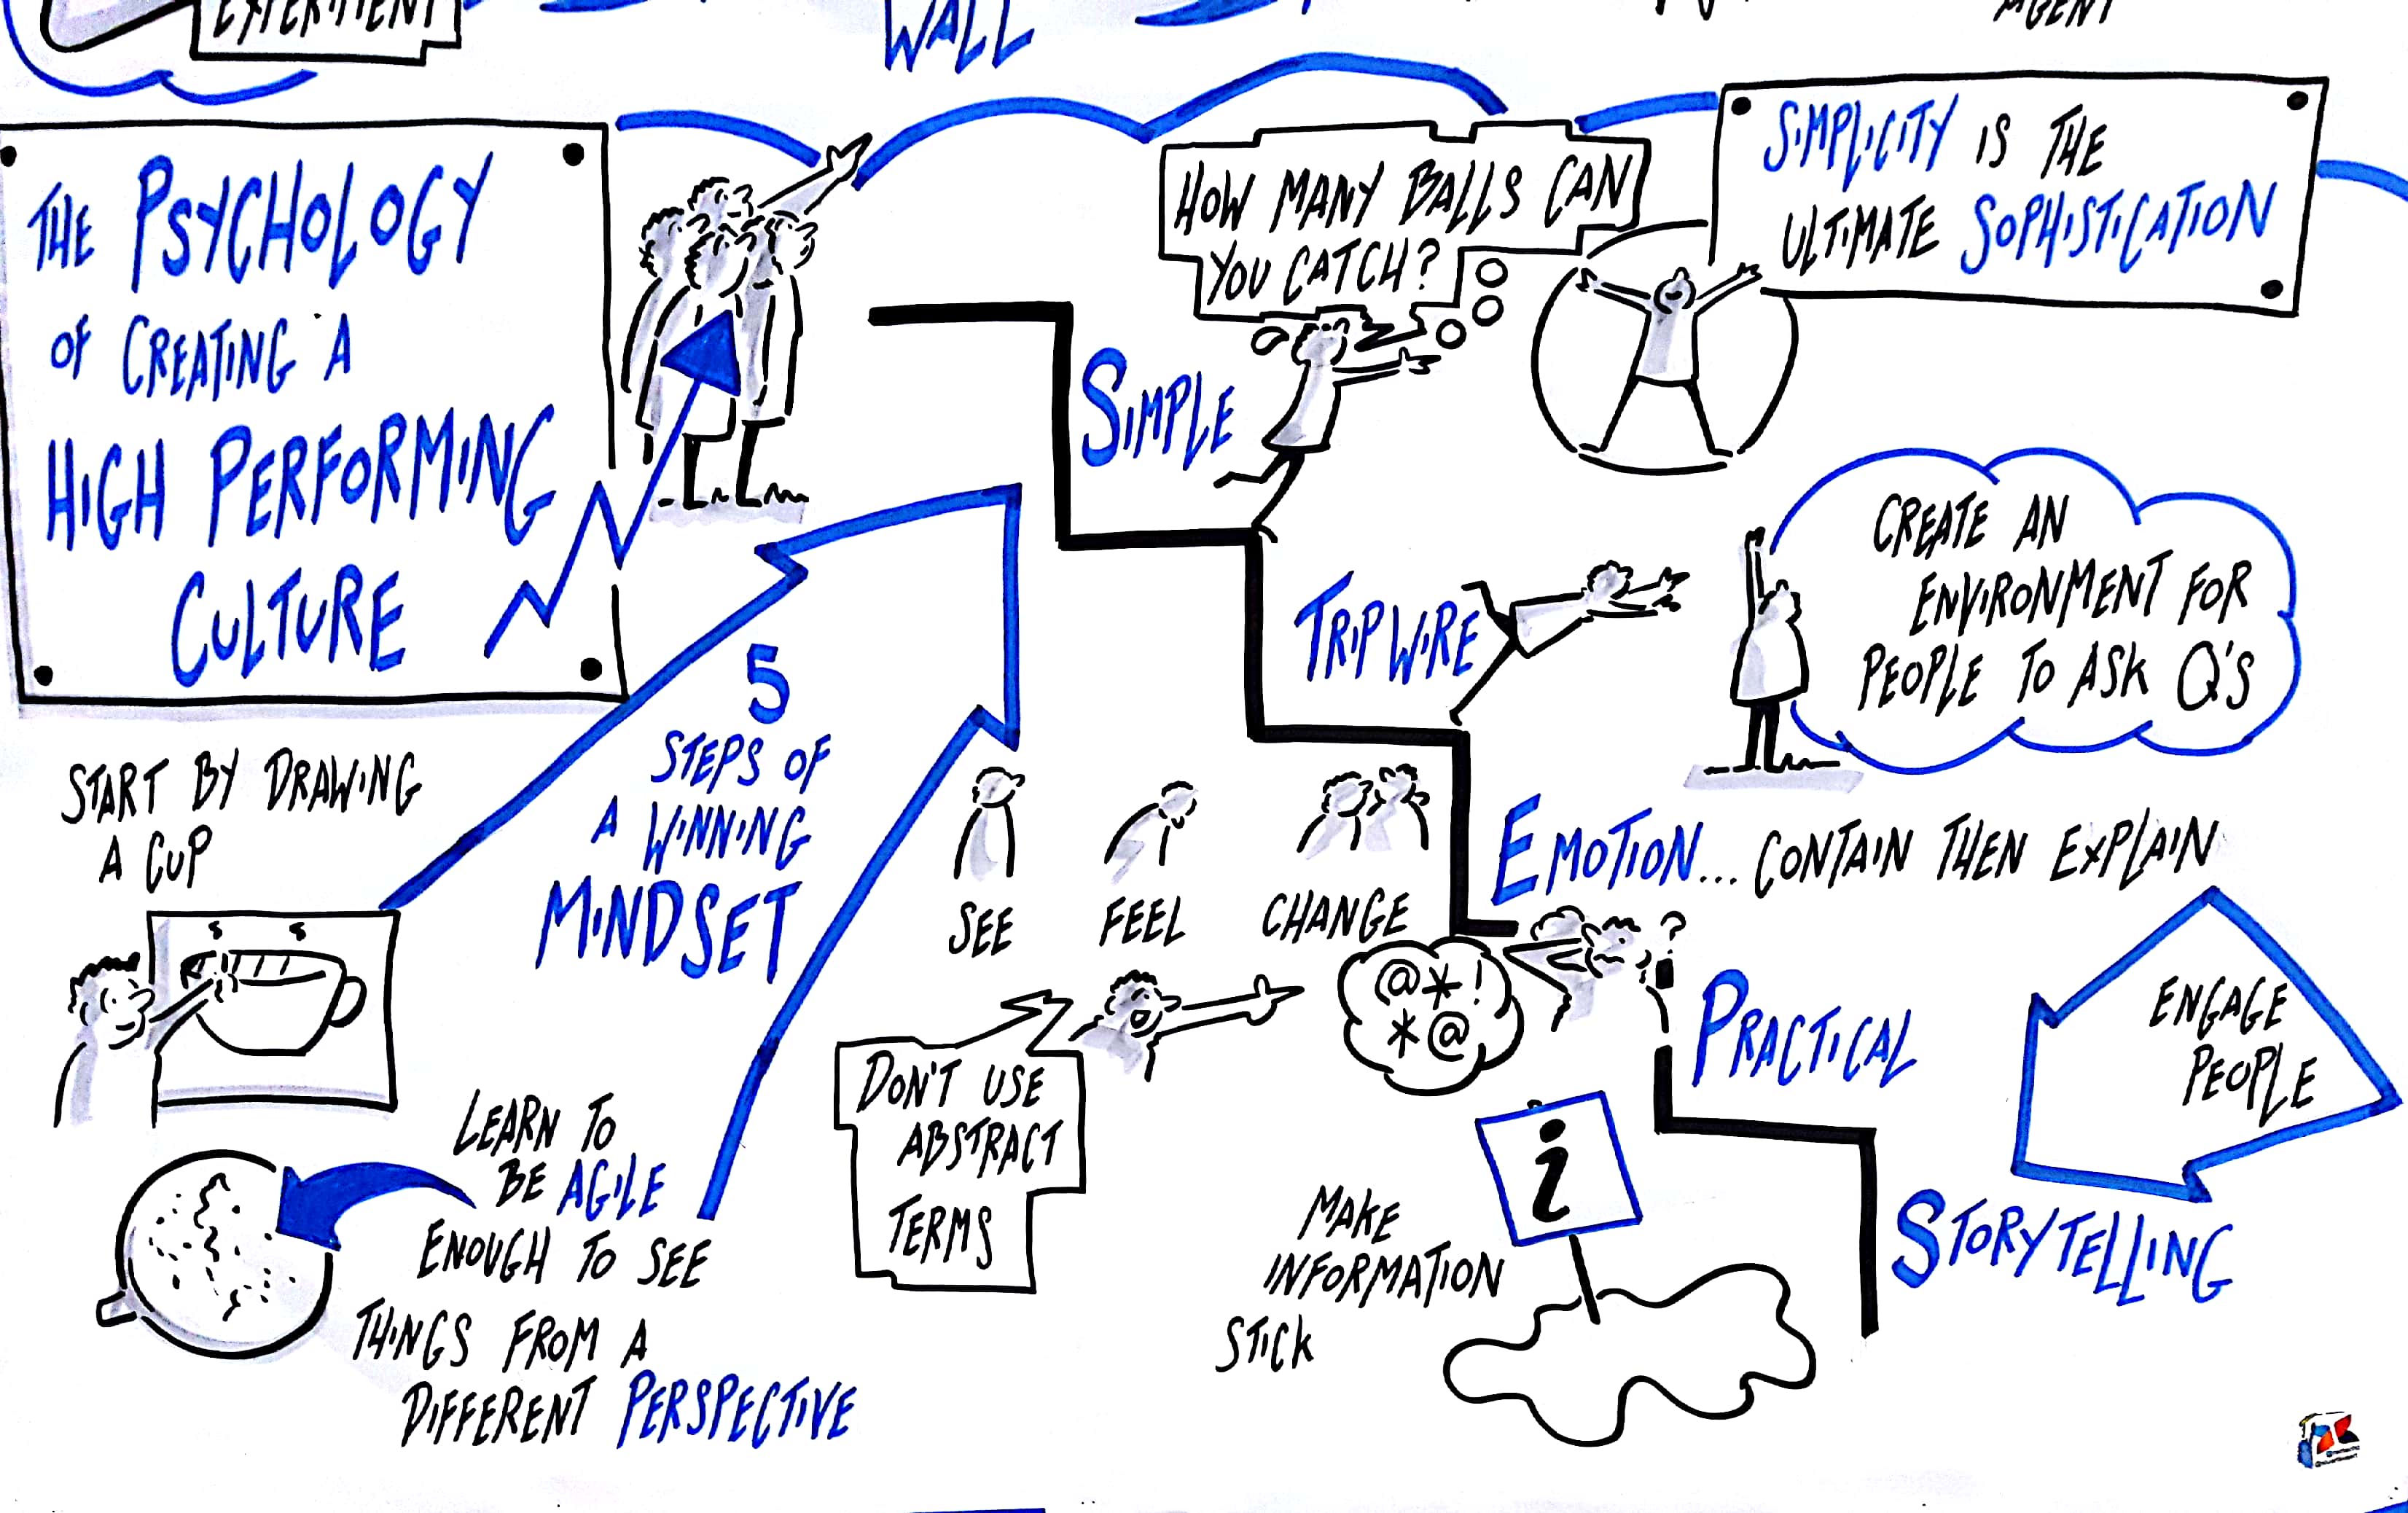 EXPERIMENT
WALL
AGENT
THE PSYCHOLOGY
OF CREATING A
HIGH PERFORMING
CULTURE
HOW MANY BALLS CAN
YOU CATCH?
SIMPLICITY IS THE
ULTIMATE SOPHISTICATION
SIMPLE
TRIPWIRE
CREATE AN
ENVIRONMENT FOR
PEOPLE TO ASK Q'S
5
STEPS OF
A WINNING
MINDSET
START BY DRAWING
A CUP
SEE
FEEL
CHANGE
EMOTION... CONTAIN THEN EXPLAIN
@*!
*@
?
PRACTICAL
ENGAGE
PEOPLE
DON'T USE
ABSTRACT
TERMS
LEARN TO
BE AGILE
ENOUGH TO SEE
THINGS FROM A
DIFFERENT PERSPECTIVE
i
MAKE
INFORMATION
STICK
STORYTELLING